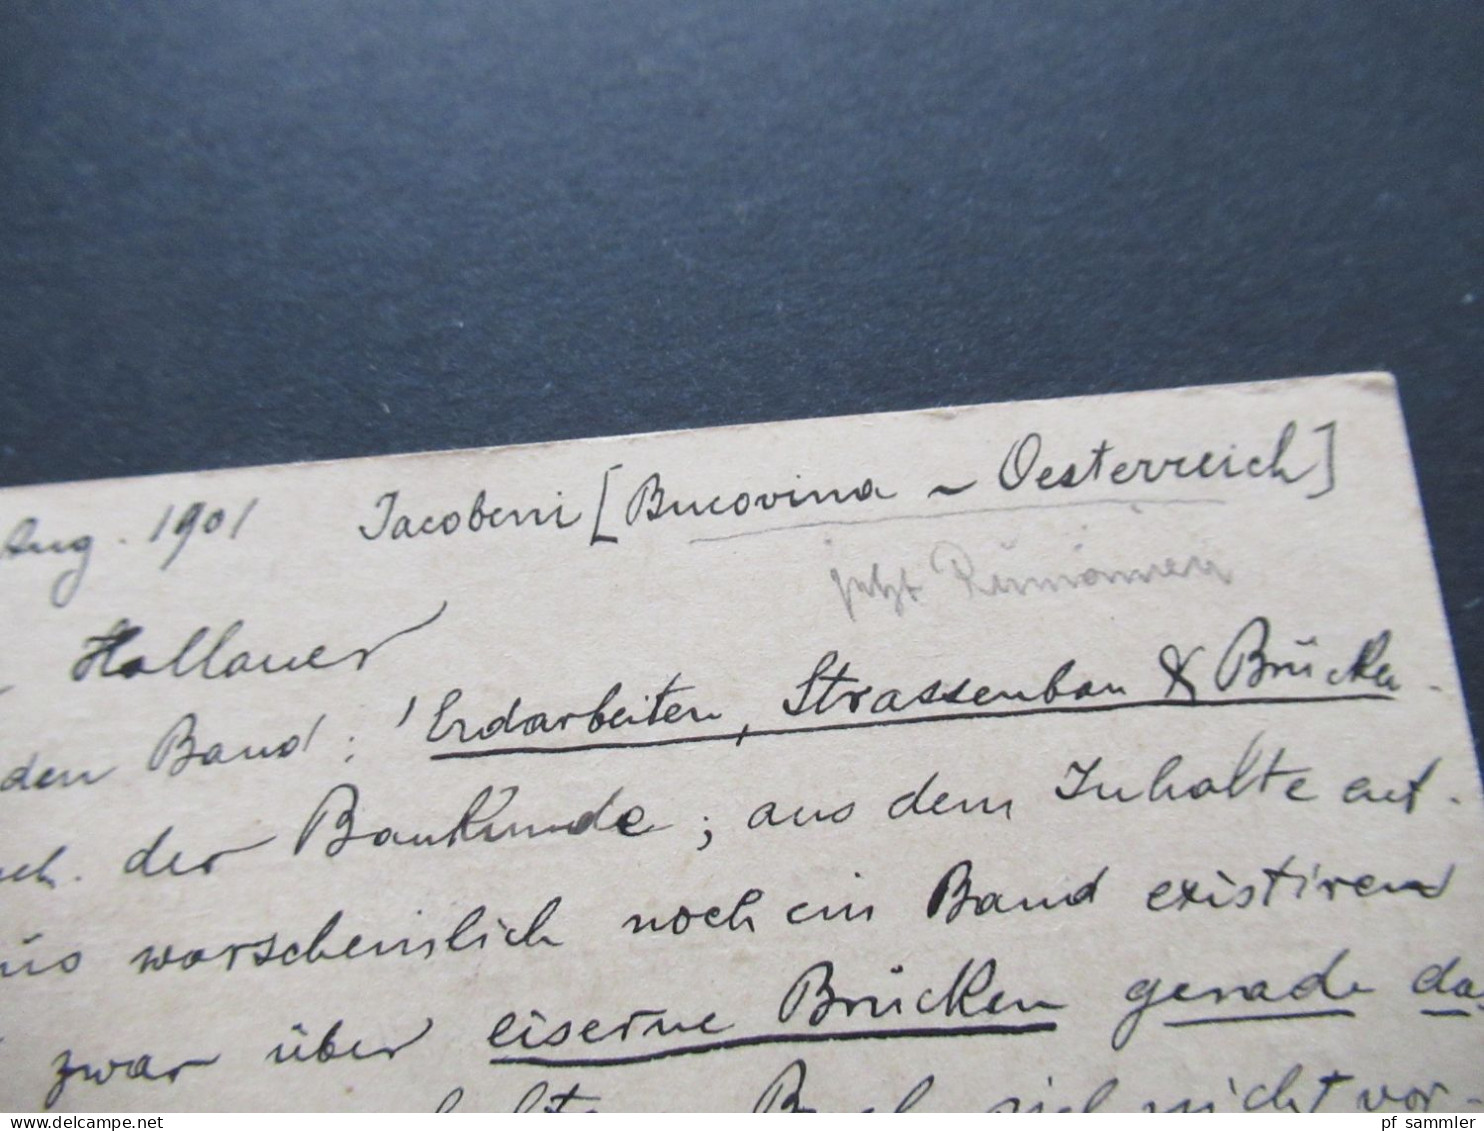 Aug. 1901 Jacobeni [Bucovina ~ Oesterreich]
jetzt Rumänien
Hollauer
den Band: 'Erdarbeiten, Strassenbau & Brücken
der Baukunde; aus dem Inhalte ent-
warscheinlich noch ein Band existiren
zwar über eiserne Brücken gerade da
Buch sich nicht vor-
© www.delcampe.net
pf_sammler